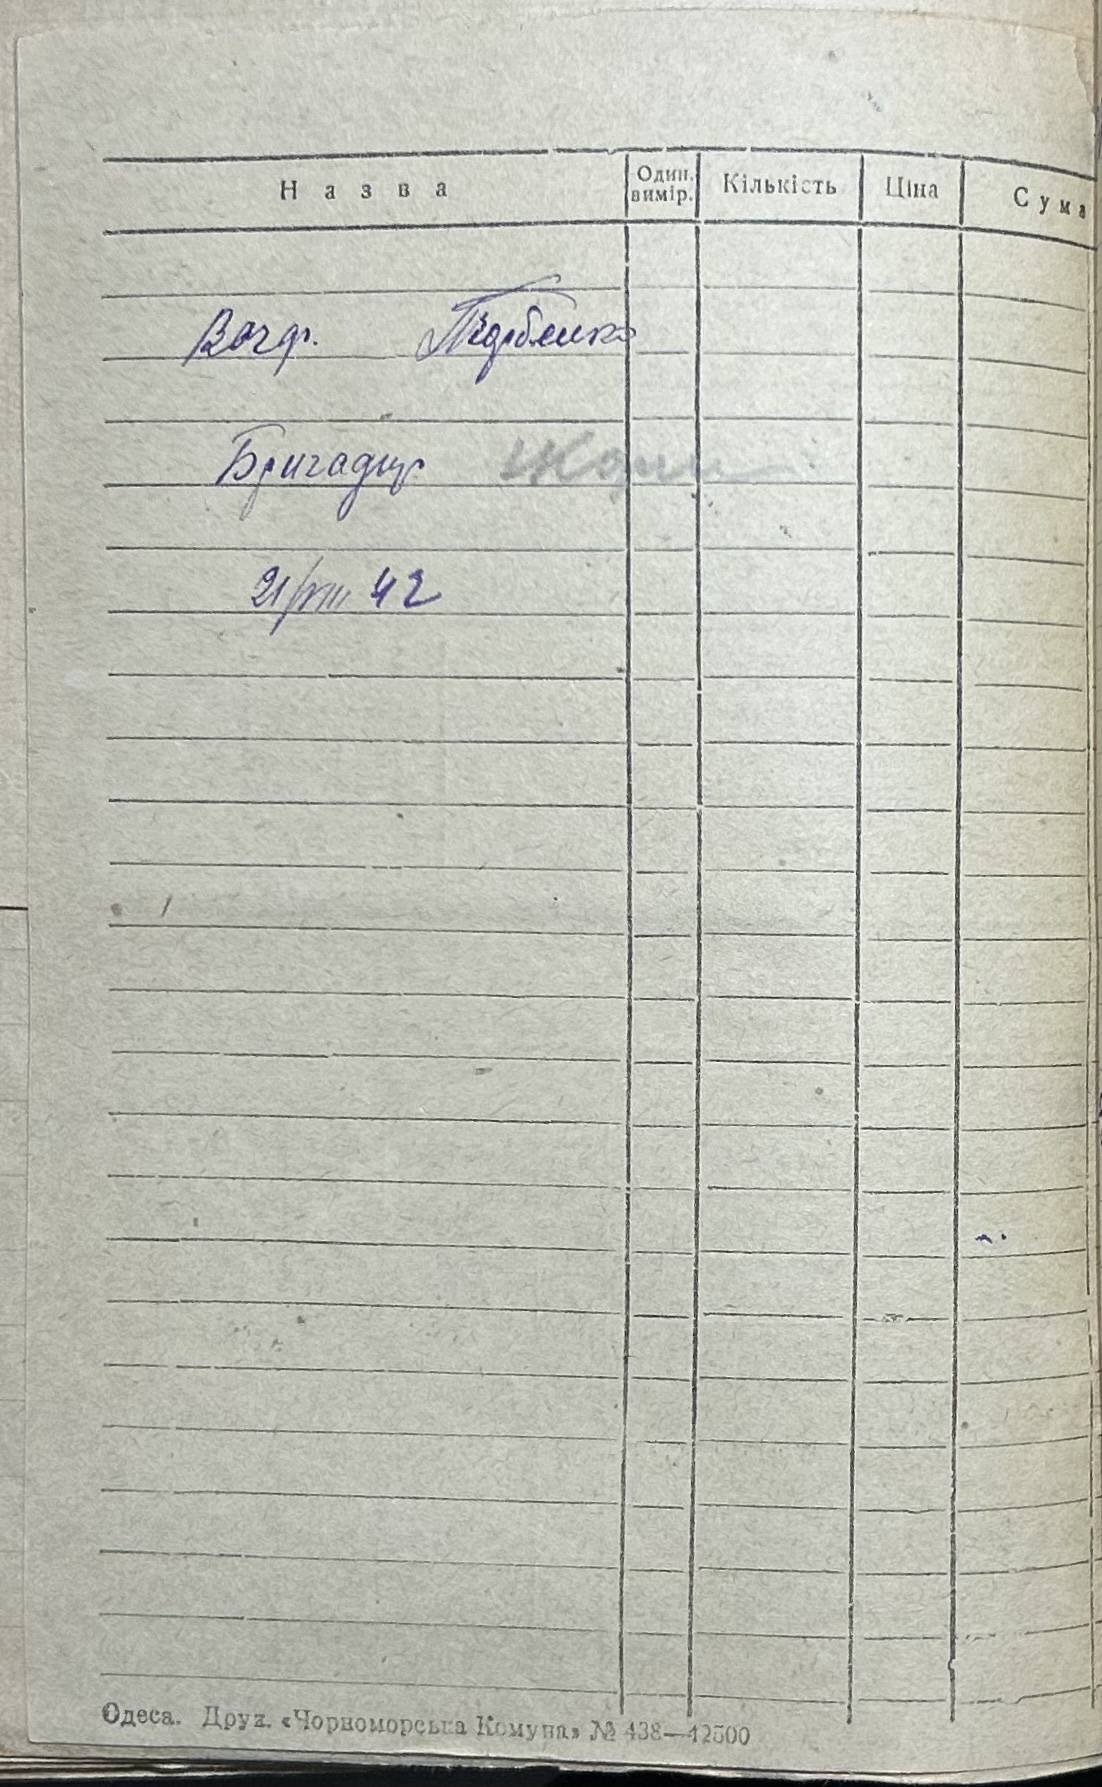 Назва Один. вимір. Кількість Ціна Сума
Вагр.
Бригадир
21/VIII 42
Одеса. Друк. «Чорноморська Комуна» № 438—42500